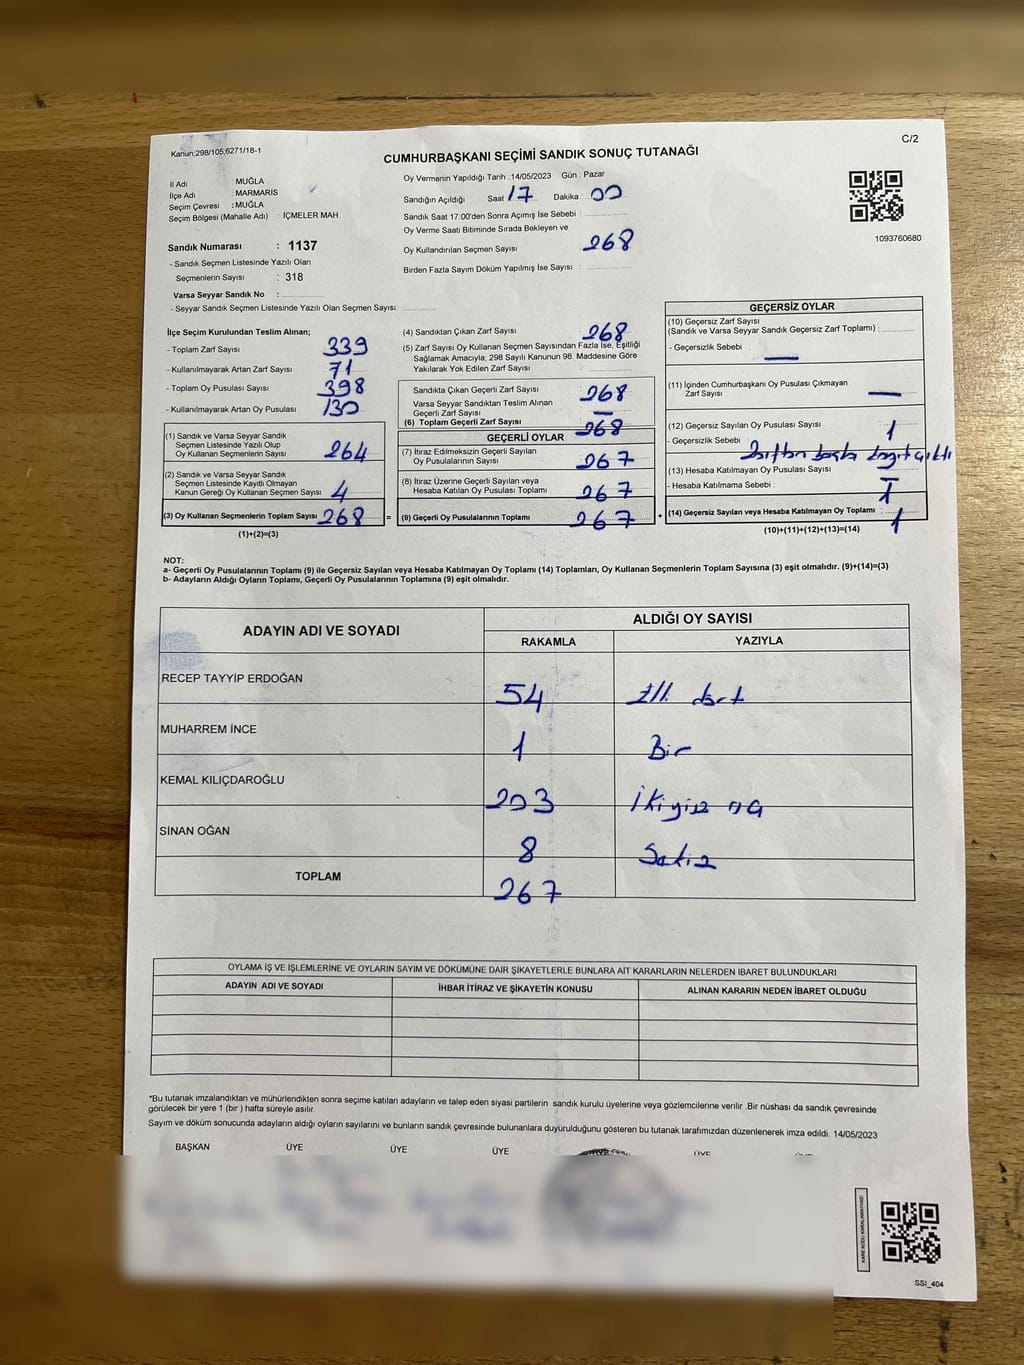 C/2
Kanun;298/105,6271/18-1
CUMHURBAŞKANI SEÇİMİ SANDIK SONUÇ TUTANAĞI
İl Adı : MUĞLA
İlçe Adı : MARMARİS
Seçim Çevresi : MUĞLA
Seçim Bölgesi (Mahalle Adı) : İÇMELER MAH.
Sandık Numarası : 1137
- Sandık Seçmen Listesinde Yazılı Olan
Seçmenlerin Sayısı : 318
Varsa Seyyar Sandık No :
- Seyyar Sandık Seçmen Listesinde Yazılı Olan Seçmen Sayısı:
Oy Vermenin Yapıldığı Tarih :14/05/2023 Gün : Pazar
Sandığın Açıldığı Saat 17 Dakika 00
Sandık Saat 17:00'den Sonra Açımış İse Sebebi :
Oy Verme Saati Bitiminde Sırada Bekleyen ve
Oy Kullandırılan Seçmen Sayısı 268
Birden Fazla Sayım Döküm Yapılmış İse Sayısı :
1093760680
İlçe Seçim Kurulundan Teslim Alınan;
- Toplam Zarf Sayısı 339
- Kullanılmayarak Artan Zarf Sayısı 71
- Toplam Oy Pusulası Sayısı 398
- Kullanılmayarak Artan Oy Pusulası 130
(1) Sandık ve Varsa Seyyar Sandık
Seçmen Listesinde Yazılı Olup
Oy Kullanan Seçmenlerin Sayısı 264
(2) Sandık ve Varsa Seyyar Sandık
Seçmen Listesinde Kayıtlı Olmayan
Kanun Gereği Oy Kullanan Seçmen Sayısı 4
(3) Oy Kullanan Seçmenlerin Toplam Sayısı 268 =
(1)+(2)=(3)
(4) Sandıktan Çıkan Zarf Sayısı 268
(5) Zarf Sayısı Oy Kullanan Seçmen Sayısından Fazla İse, Eşitliği
Sağlamak Amacıyla, 298 Sayılı Kanunun 98. Maddesine Göre
Yakılarak Yok Edilen Zarf Sayısı
Sandıkta Çıkan Geçerli Zarf Sayısı 268
Varsa Seyyar Sandıktan Teslim Alınan
Geçerli Zarf Sayısı —
(6) Toplam Geçerli Zarf Sayısı 268
GEÇERLİ OYLAR
(7) İtiraz Edilmeksizin Geçerli Sayılan
Oy Pusulalarının Sayısı 267
(8) İtiraz Üzerine Geçerli Sayılan veya
Hesaba Katılan Oy Pusulası Toplamı 267
(9) Geçerli Oy Pusulalarının Toplamı 267 +
GEÇERSİZ OYLAR
(10) Geçersiz Zarf Sayısı
(Sandık ve Varsa Seyyar Sandık Geçersiz Zarf Toplamı) :
- Geçersizlik Sebebi : —
(11) İçinden Cumhurbaşkanı Oy Pusulası Çıkmayan
Zarf Sayısı —
(12) Geçersiz Sayılan Oy Pusulası Sayısı 1
- Geçersizlik Sebebi başka çıktı
(13) Hesaba Katılmayan Oy Pusulası Sayısı
- Hesaba Katılmama Sebebi :
(14) Geçersiz Sayılan veya Hesaba Katılmayan Oy Toplamı : 1
(10)+(11)+(12)+(13)=(14)
NOT:
a- Geçerli Oy Pusulalarının Toplamı (9) ile Geçersiz Sayılan veya Hesaba Katılmayan Oy Toplamı (14) Toplamları, Oy Kullanan Seçmenlerin Toplam Sayısına (3) eşit olmalıdır. (9)+(14)=(3)
b- Adayların Aldığı Oyların Toplamı, Geçerli Oy Pusulalarının Toplamına (9) eşit olmalıdır.
ADAYIN ADI VE SOYADI
ALDIĞI OY SAYISI
RAKAMLA YAZIYLA
RECEP TAYYİP ERDOĞAN 54 Elli dört
MUHARREM İNCE 1 Bir
KEMAL KILIÇDAROĞLU 203 İkiyüz
SİNAN OĞAN 8 Sekiz
TOPLAM 267
OYLAMA İŞ VE İŞLEMLERİNE VE OYLARIN SAYIM VE DÖKÜMÜNE DAİR ŞİKAYETLERLE BUNLARA AİT KARARLARIN NELERDEN İBARET BULUNDUKLARI
ADAYIN ADI VE SOYADI İHBAR İTİRAZ VE ŞİKAYETİN KONUSU ALINAN KARARIN NEDEN İBARET OLDUĞU
*Bu tutanak imzalandıktan ve mühürlendikten sonra seçime katılan adayların ve talep eden siyasi partilerin sandık kurulu üyelerine veya gözlemcilerine verilir. Bir nüshası da sandık çevresinde
görülecek bir yere 1 (bir ) hafta süreyle asılır.
Sayım ve döküm sonucunda adayların aldığı oyların sayılarını ve bunların sandık çevresinde bulunanlara duyurulduğunu gösteren bu tutanak tarafımızdan düzenlenerek imza edildi. 14/05/2023
BAŞKAN ÜYE ÜYE ÜYE ÜYE
SSI_404